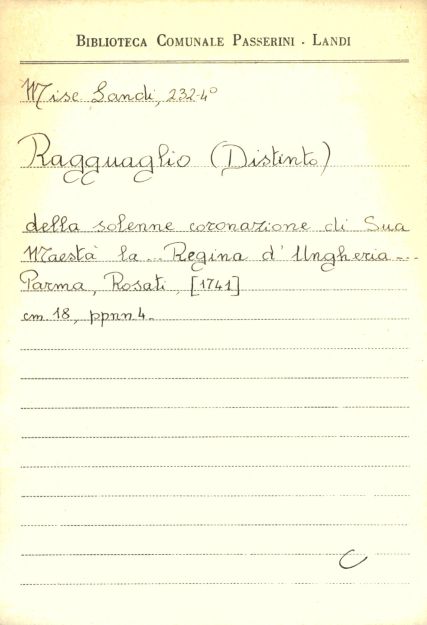 BIBLIOTECA COMUNALE PASSERINI - LANDI
Misc Landi, 232-4º
Ragguaglio (Distinto)
della solenne coronazione di Sua
Maestà la ... Regina d'Ungheria ...
Parma, Rosati, [1741]
cm 18, ppnn 4.
C